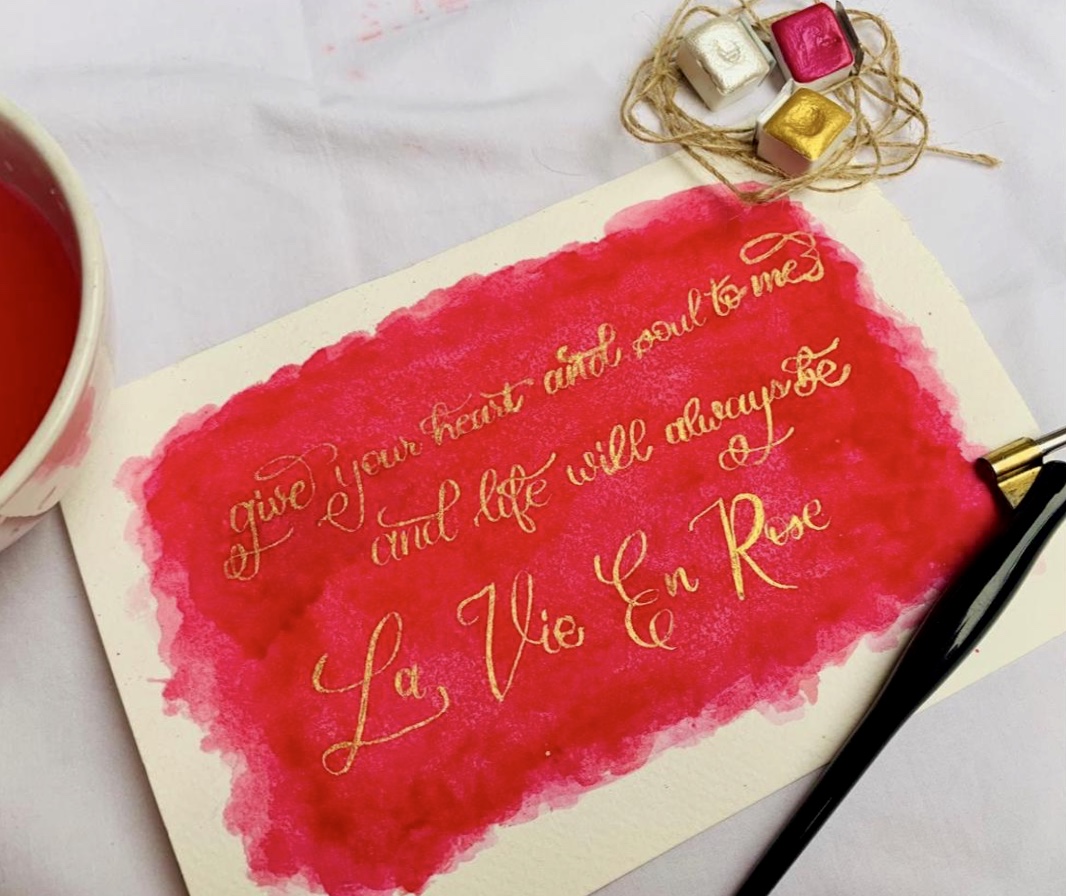 give your heart and soul to me
and life will always be
La Vie En Rose